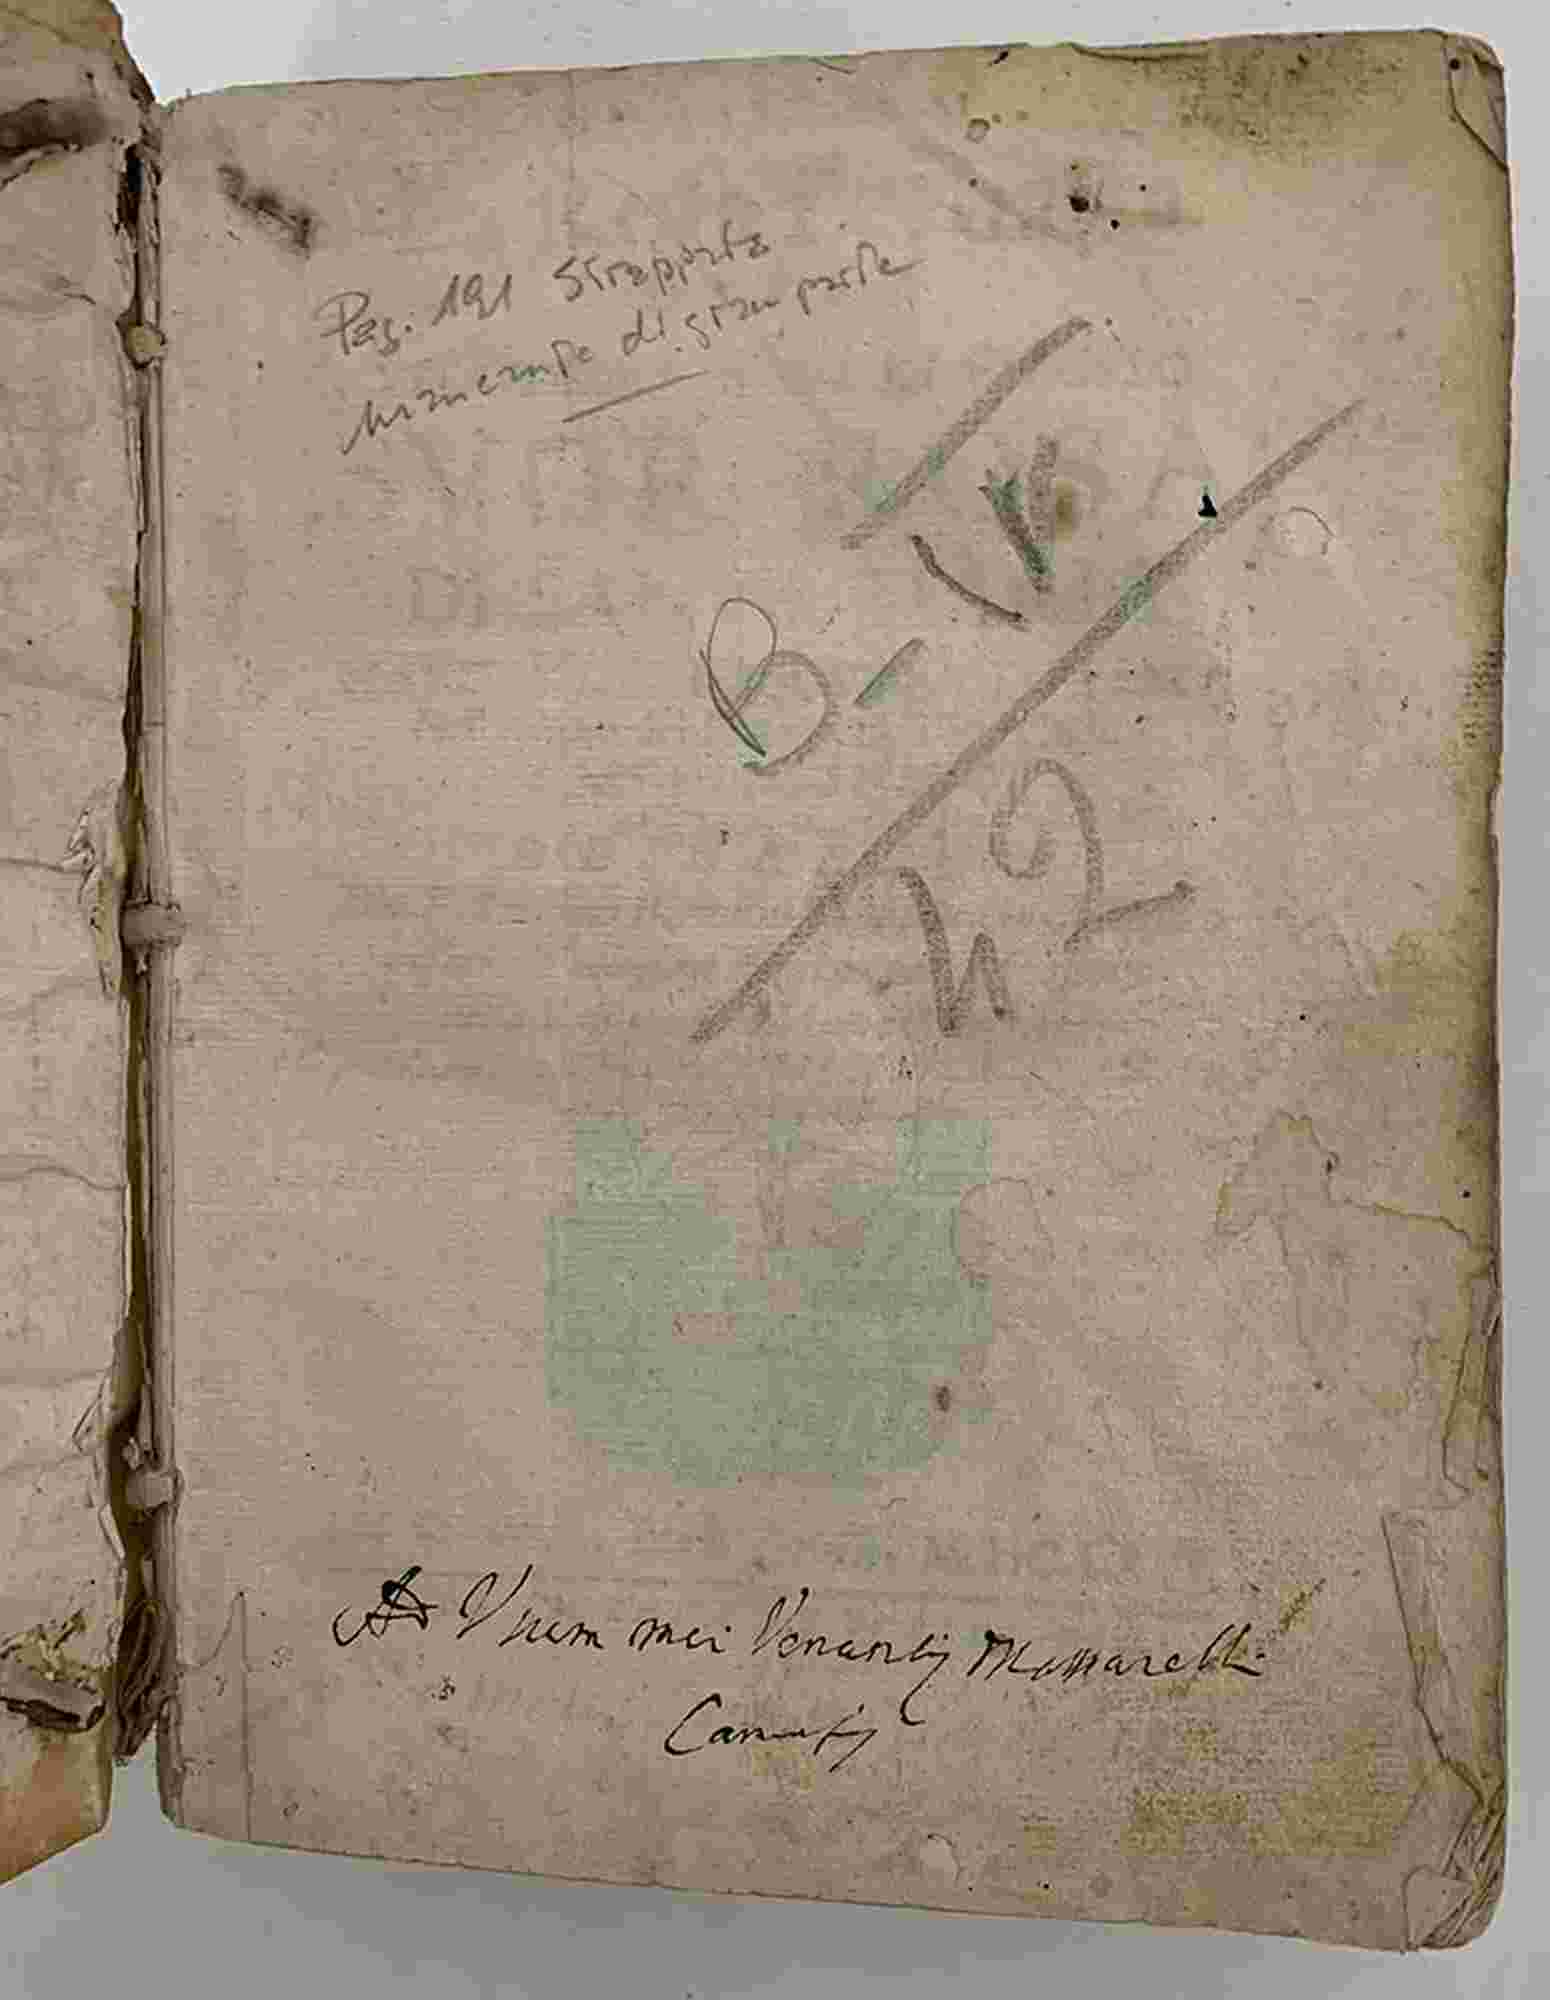 Pag. 191 strappata
mancante di gran parte
B - IV
42
Ad Vsum mei Venantij Massarelli